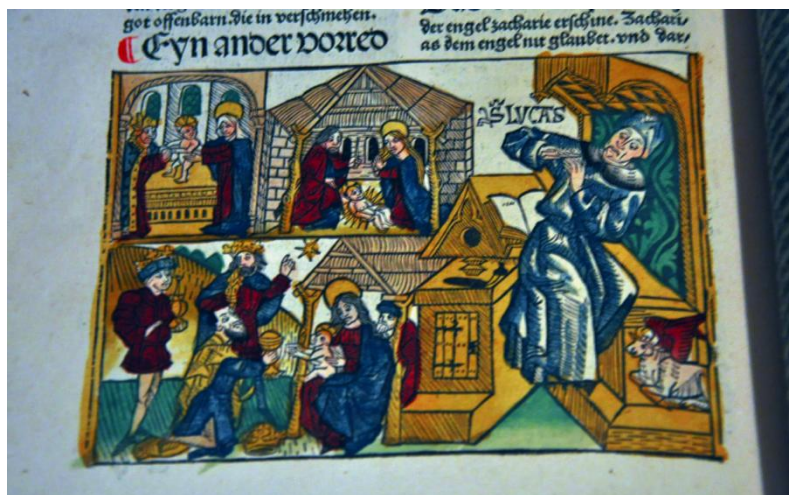 got offenbarn. die in verschmehen.
Eyn ander vorred
der engel zacharie erschine. Zachari/
as dem engel nit glaubet. vnd dar/
S LVCAS